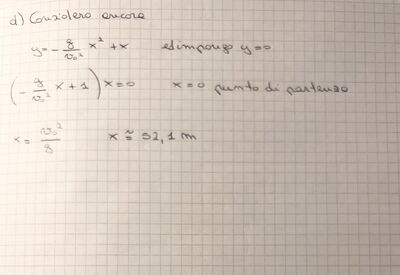 d) Considero ancora
y = - g/v₀² x² + x  ed impongo y=0
(- g/v₀² x + 1) x = 0  x=0 punto di partenza
x = v₀²/g  x ≅ 52,1 m